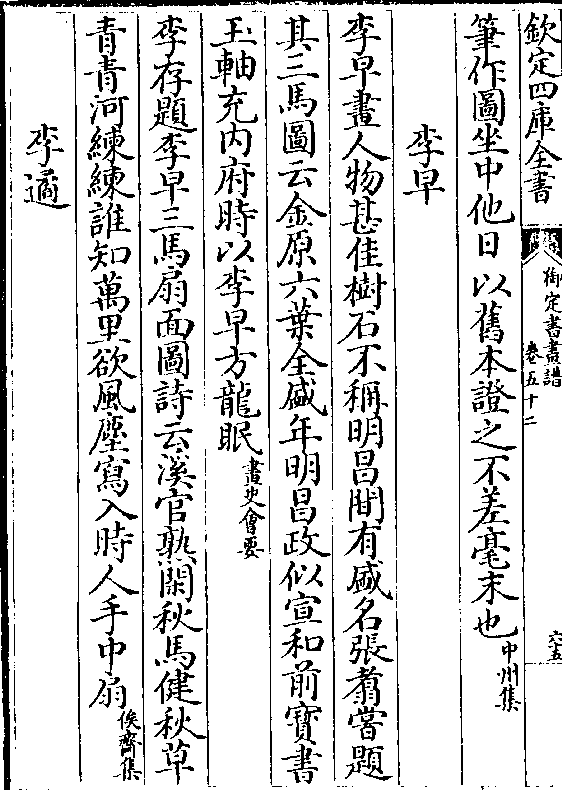 欽定四庫全書
御定書畫譜
卷五十二
六五
筆作圖坐中他日以舊本證之不差毫末也中州集
李早
李早畫人物甚佳樹石不稱明昌間有盛名張翥嘗題
其三馬圖云金原六葉全盛年明昌政似宣和前寶書
玉軸充內府時以李早方龍眠畫史會要
李存題李早三馬扇面圖詩云溪官熟閑秋馬健秋草
青青河練練誰知萬里欲風塵寫入時人手中扇俟齋集
李遹